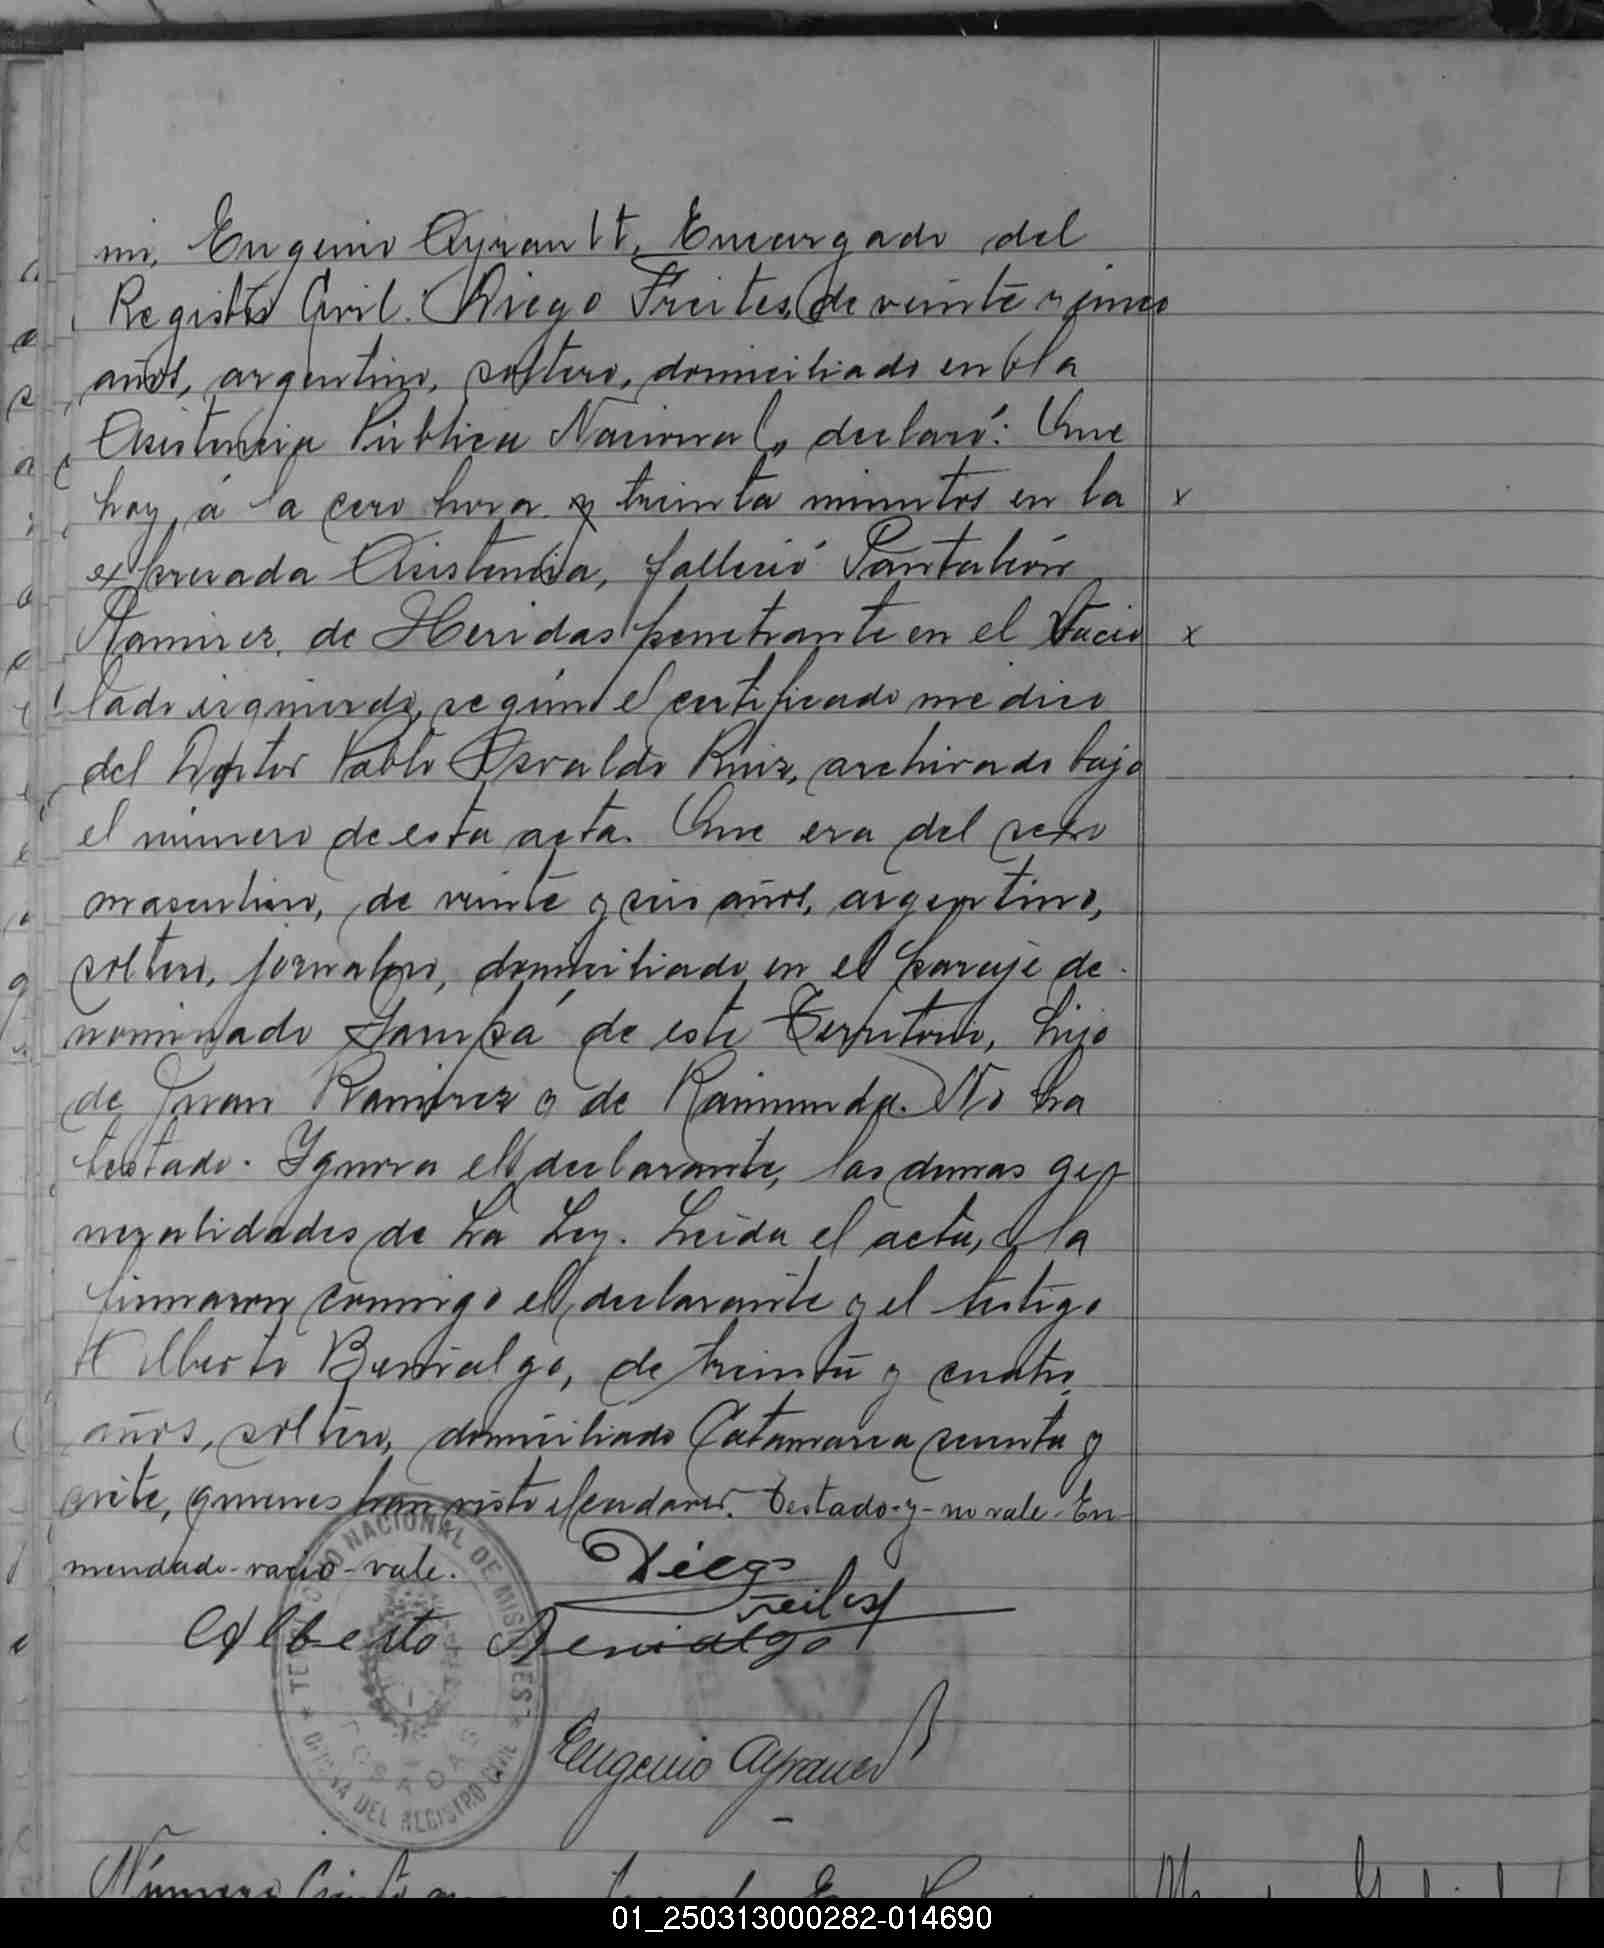 mi, Eugenio Ayrault, Encargado del
Registro Civil. Diego Freites, de veinte y cinco
años, argentino, soltero, domiciliado en la
Asistencia Pública Nacional, declaró: Que
hoy, á la cero hora y treinta minutos en la x
expresada Asistencia, falleció Pantaleón
Ramirez, de Heridas penetrante en el vacio x
lado izquierdo, según el certificado medico
del Doctor Pablo Osvaldo Ruiz, archivado bajo
el número de esta acta. Que era del sexo
masculino, de veinte y seis años, argentino,
soltero, jornalero, domiciliado en el paraje de-
nominado de este Territorio, hijo
de Juan Ramirez y de Raimunda. No ha
testado. Ygnora el declarante, las demas ge-
neralidades de La Ley. Leída el acta, la
firmaron conmigo el declarante y el testigo
Alberto Benialgo, de treinta y cuatro
años, soltero, domiciliado Catamarca y
siete, quienes han visto el cadaver. Testado-y-no vale-En-
mendado-vacio-vale.
Diego
Freites
Alberto Benialgo
Eugenio Ayrault
TERRITORIO NACIONAL DE MISIONES
POSADAS
OFICINA DEL REGISTRO CIVIL
Número Ciento
01_250313000282-014690